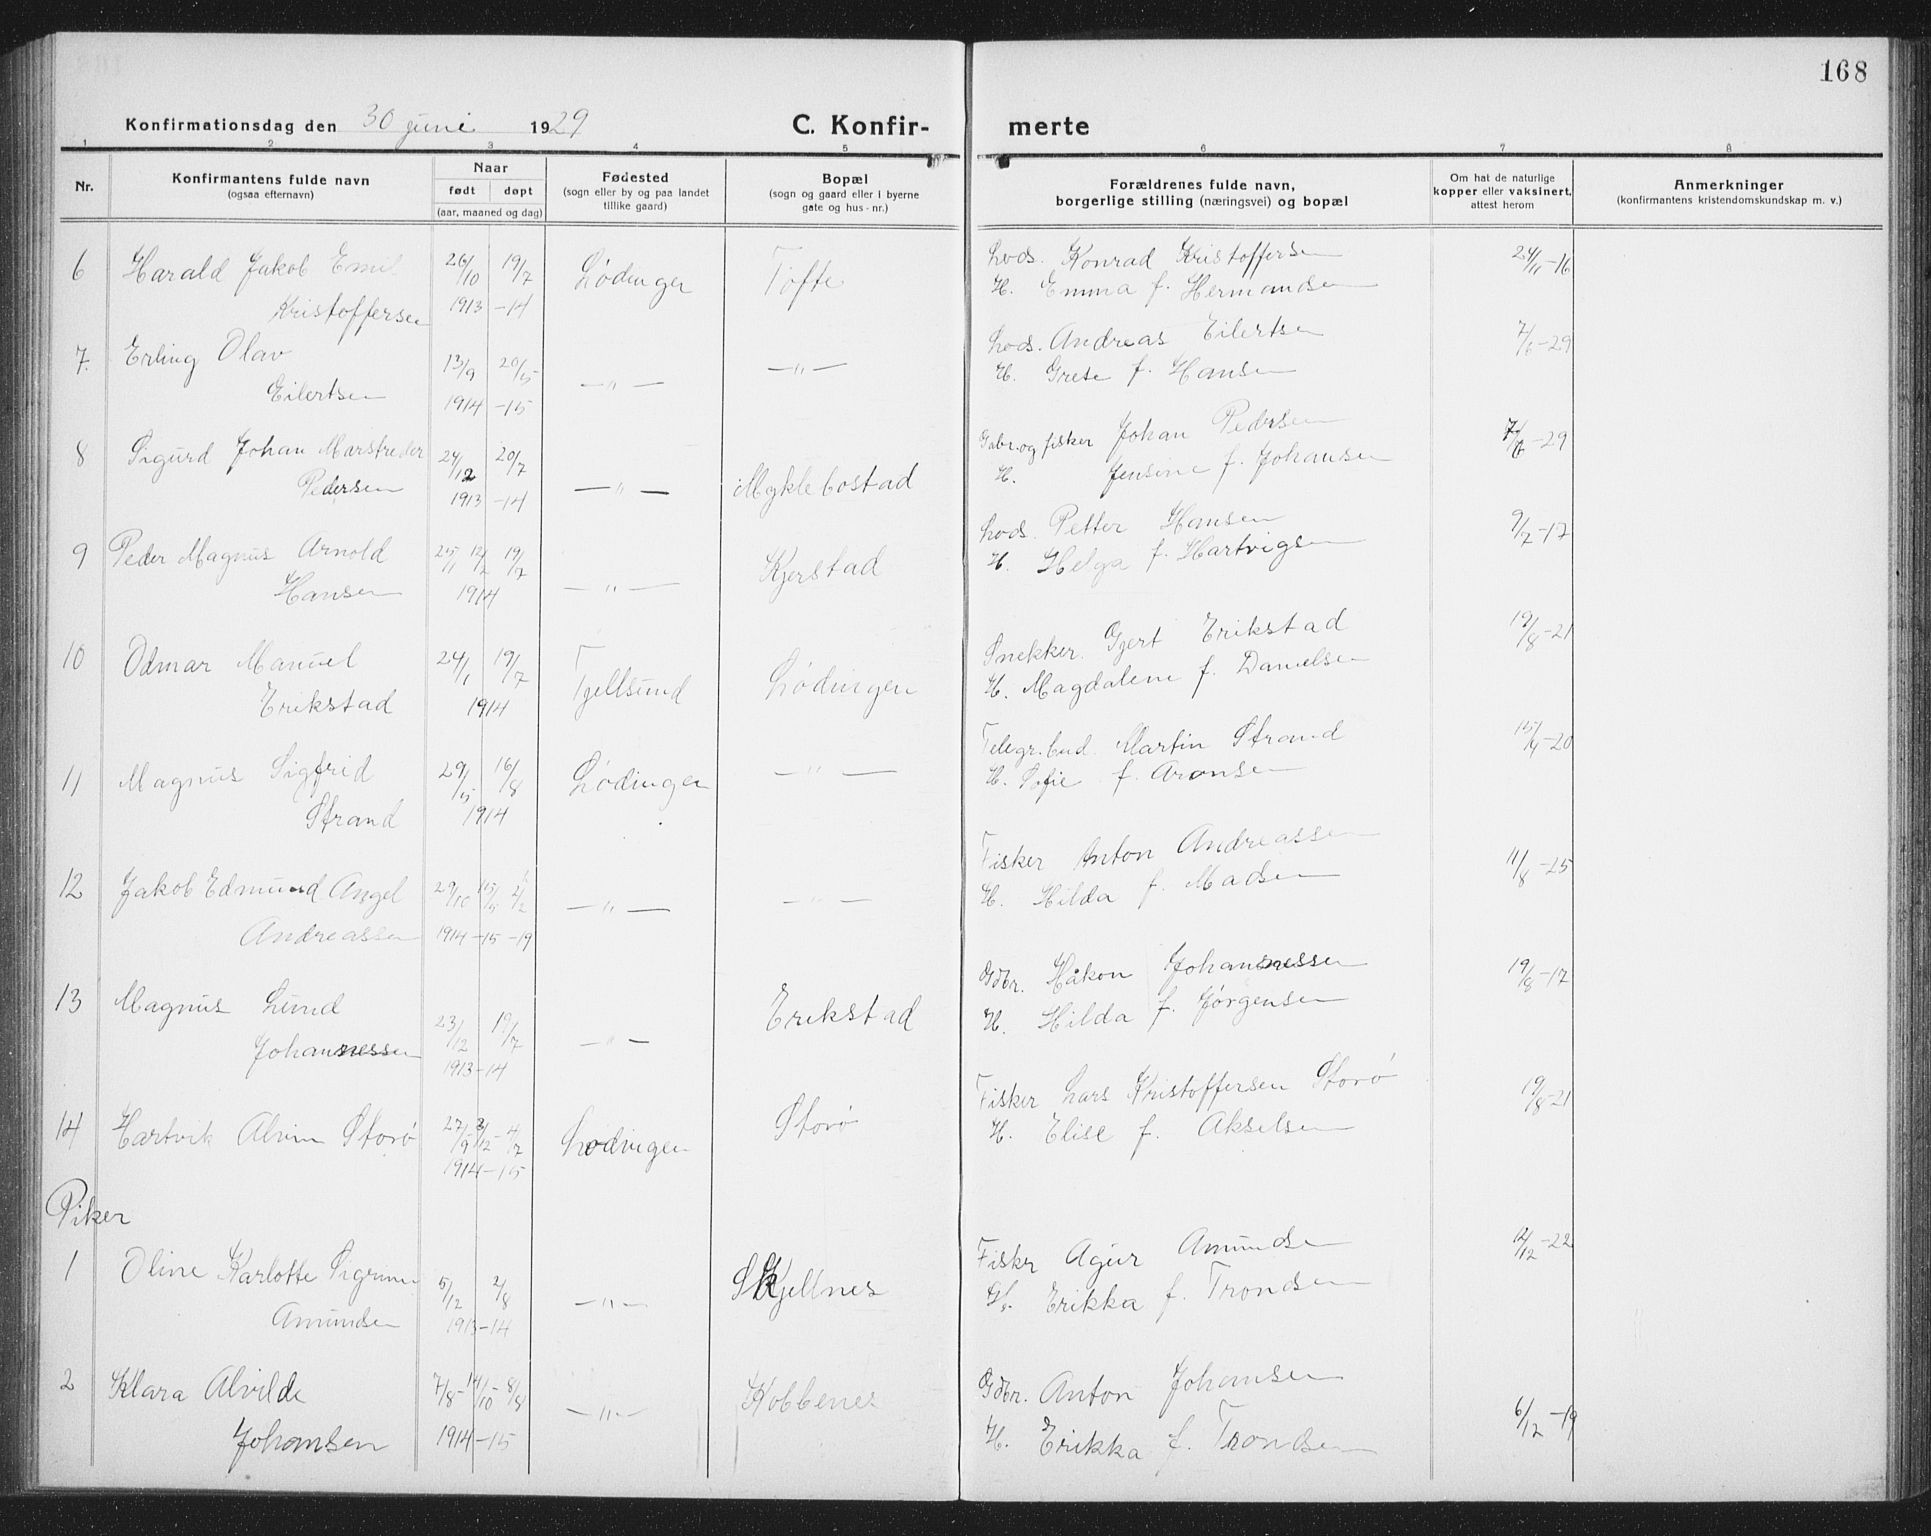 168
Konfirmationsdag den 30 juni 1929
C. Konfirmerte
1 2 3 4 5 6 7 8
Nr.
Konfirmantens fulde navn
(ogsaa efternavn)
Naar
født døpt
(aar, maaned og dag)
Fødested
(sogn eller by og paa landet
tillike gaard)
Bopæl
(sogn og gaard eller i byerne
gate og hus-nr.)
Forældrenes fulde navn,
borgerlige stilling (næringsvei) og bopæl
Om hat de naturlige
kopper eller vaksinert,
attest herom
Anmerkninger
(konfirmantens kristendomskundskap m. v.)
6 Harald Jakob Emil 26/10 19/7 Lødingen Tofte Lods. Konrad Kristoffersen 24/11-16
Kristoffersen 1913 -14 H. Emma f. Hermandsen
7. Erling Olav 13/9 20/5 —"— —"— Lods. Andreas Eilertsen 7/6-29
Eilertsen 1914 -15 H. Grete f. Hansen
8 Sigurd Johan Marstreder 24/12 20/7 —"— Myklebostad Gabr. og fisker Johan Pedersen 7/6-29
Pedersen 1913 -14 H. Jensine f. Johansen
9 Peder Magnus Arnold 25/1 12/2 19/7 —"— Kjerstad Lods. Petter Hansen 9/7-17
Hansen 1914 H. Helga f. Hartvigsen
10 Odmar Manuel 24/1 19/7 Tjellsund Lødingen Snekker. Gjert Erikstad 19/8-21
Erikstad 1914 H. Magdalene f. Danielsen
11 Magnus Sigfrid 29/5 16/8 Lødingen —"— Telegr.bud. Martin Strand 15/4-20
Strand 1914 H. Sofie f. Aronsen
12 Jakob Edmund Angel 29/10 15/5 2/2 —"— —"— Fisker Anton Andreassen 11/8-25
Andreassen 1914 -15 -19 H. Hilda f. Madsen
13 Magnus Lund 23/12 19/7 —"— Erikstad Gdbr. Håkon Johannessen 19/8-17
Johannessen 1913-14 H. Hilda f. Jørgensen
14 Hartvik Alvin Storø 27/9 3/12 - 4/7 Lødingen Storø Fisker Lars Kristoffersen Storø 19/8-21
1914-15 H. Elise f. Akselsen
Piker
1 Oline Karlotte Sigrunn 5/12 2/8 —"— Skjellnes Fisker Agur Amundsen 12/12-22
Amundsen 1913-14 H. Erikka f. Trondsen
2 Klara Alvilde 7/8-14/10-8/8 —"— Kobbenes Gdbr. Anton Johansen 6/12-19
Johansen 1914-15 H. Erikka f. Trondsen